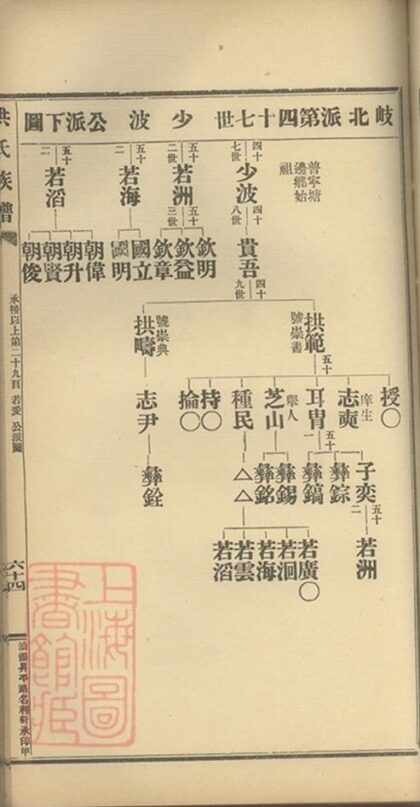 岐北派第四十七世少波公派下圖
普寧塘
邊鄉始
祖
四十
七世
少波
四十
八世
貴吾
四十
九世
拱範
號崇書
五十
拱疇
號崇典
志尹
彝銓
授〇
志奭
庠生
耳胄
芝山
舉人
種民
持〇
掄〇
五十
一
子奕
彝綜
彝鎬
彝錫
彝銘
△△
五十
二
若洲
若廣〇
若洄
若海
若雲
若滔
五十
二世
若洲
五十
三世
欽明
欽益
欽章
五十
二
若海
國立
國明
五十
二
若滔
朝偉
朝升
朝賢
朝俊
洪氏族譜
承接以上第二十九頁若愛公派圖
六十四
汕頭昇平路名利軒承印
上海圖
書館藏